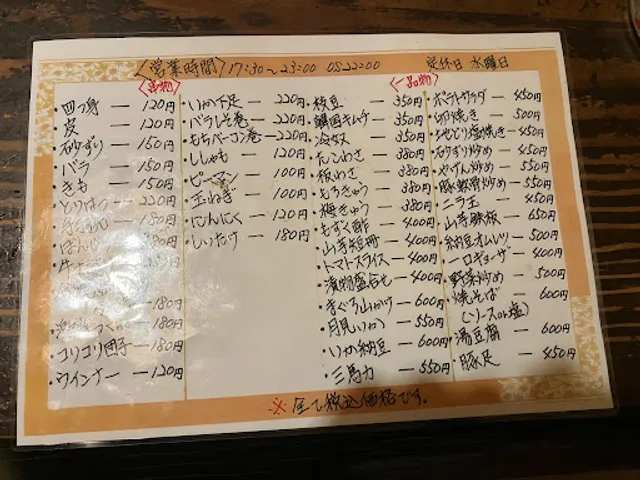 〈営業時間〉17:30～23:00 OS22:00 定休日 水曜日
〈串物〉
・四つ身 ― 120円
・皮 ― 120円
・砂ずり ― 150円
・バラ ― 150円
・きも ― 150円
・とりはつ ― 220円
180円
180円
180円
180円
・コリコリ団子 ― 180円
・ウインナー ― 120円
・いか下足 ― 220円
・バラしそ巻 ― 220円
・もちベーコン巻 ― 220円
・ししゃも ― 120円
・ピーマン ― 100円
・玉ねぎ ― 100円
・にんにく ― 120円
・しいたけ ― 180円
〈一品物〉
・枝豆 ― 350円
・韓国キムチ ― 350円
・冷奴 ― 350円
・たこわさ ― 380円
・板わさ ― 380円
・とろきゅう ― 380円
・梅きゅう ― 380円
・もずく酢 ― 400円
・山芋短冊 ― 400円
・トマトスライス ― 400円
・漬物盛合せ ― 400円
・まぐろ山かけ ― 600円
・月見いか ― 550円
・いか納豆 ― 600円
・三馬力 ― 550円
・ポテトサラダ ― 450円
・卵焼き ― 500円
・地どり塩焼き ― 450円
・砂ずり炒め ― 550円
・やげん炒め ― 550円
・豚軟骨炒め ― 550円
・ニラ玉 ― 450円
・山芋鉄板 ― 650円
・納豆オムレツ ― 500円
・一口ギョーザ ― 400円
・野菜炒め ― 500円
・焼そば ― 600円
(ソースor塩)
・湯豆腐 ― 600円
・豚足 ― 450円
※全て税込価格です。